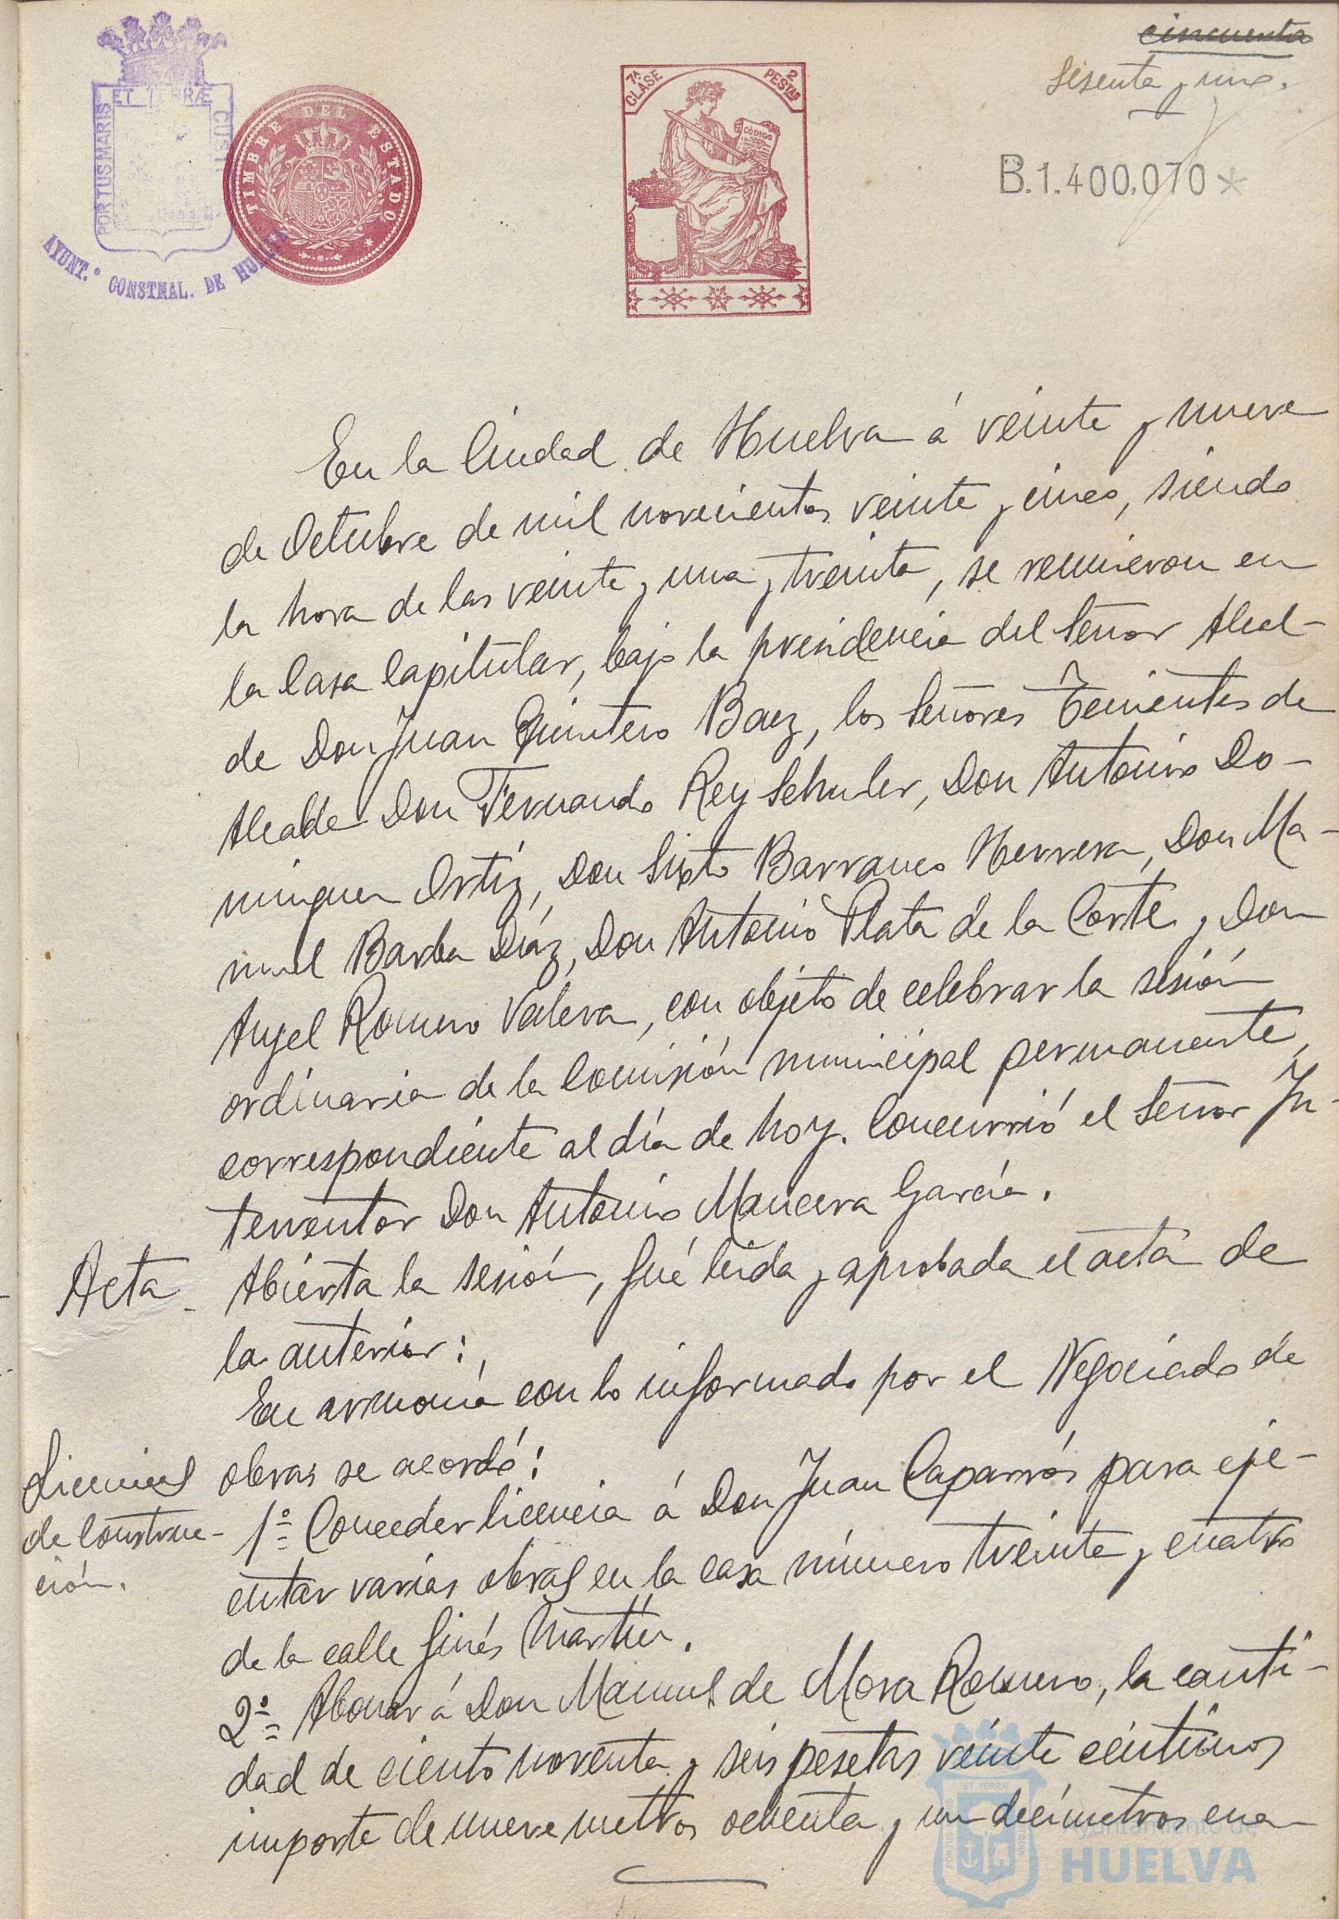 cincuenta
sesenta y uno.
PORTUS MARIS ET TERRÆ CUST
AYUNT.º CONSTNAL. DE HUELVA
TIMBRE DEL ESTADO
7ª CLASE
2 PESTAS
CÓDIGO
B.1.400.070*
En la Ciudad de Huelva á veinte y nueve
de Octubre de mil novecientos veinte y cinco, siendo
la hora de las veinte y una y treinta, se reunieron en
la Casa Capitular, bajo la presidencia del Señor Alcal-
de Don Juan Quintero Baez, los Señores Tenientes de
Alcalde Don Fernando Rey Schuler, Don Antonio Do-
minguez Ortiz, Don Sixto Barranco Herrera, Don Ma-
nuel Barba Díaz, Don Antonio Plata de la Corte y Don
Angel Romero Valera, con objeto de celebrar la sesión
ordinaria de la Comisión municipal permanente,
correspondiente al día de hoy. Concurrió el Señor In-
terventor Don Antonio Mancera García.
Acta. Abierta la sesión, fué leida y aprobada el acta de
la anterior:
En armonía con lo informado por el Negociado de
Licencias obras se acordó:
de Construc- 1º Conceder licencia á Don Juan Caparrós para eje-
ción. cutar varias obras en la casa número treinta y cuatro
de la calle Ginés Martín.
2º Abonar á Don Manuel de Mora Romero, la canti-
dad de ciento noventa y seis pesetas veinte céntimos
importe de nueve metros ochenta y un decímetros cua-
Ayuntamiento de
HUELVA